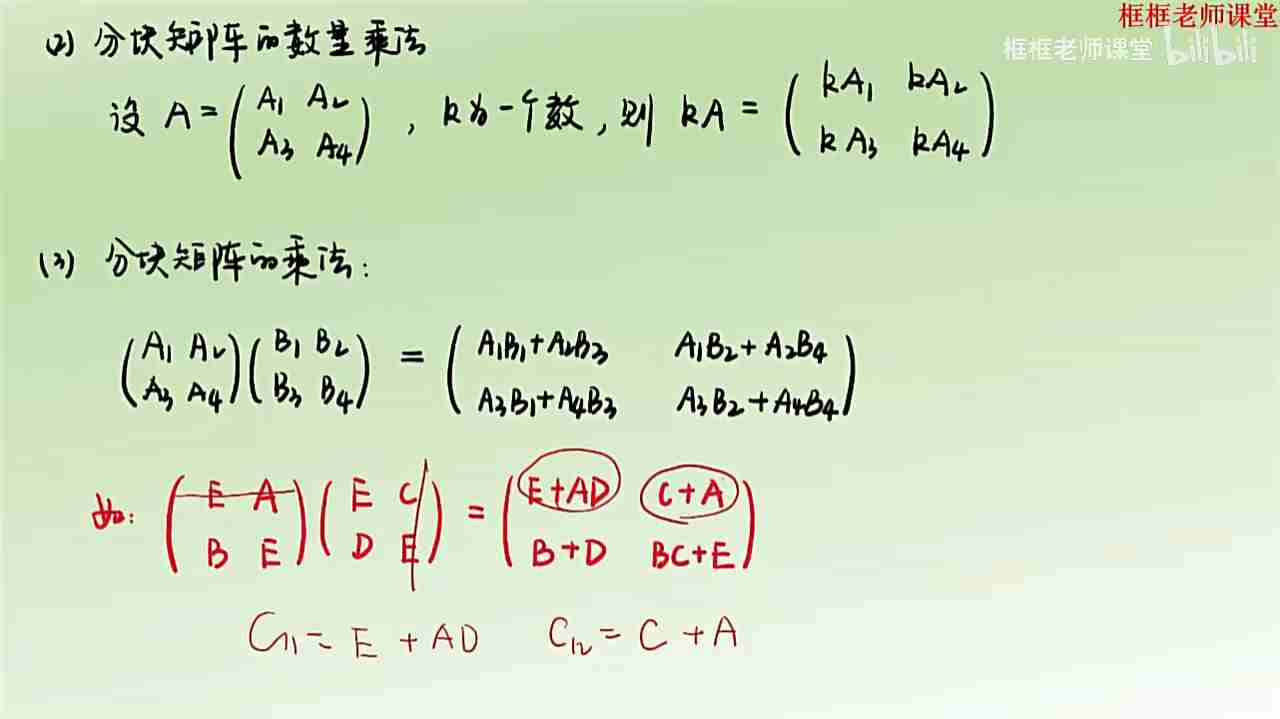 框框老师课堂
框框老师课堂 bilibili
(2) 分块矩阵的数量乘法
设 A = (A₁ A₂ ; A₃ A₄) , k为一个数, 则 kA = (kA₁ kA₂ ; kA₃ kA₄)
(3) 分块矩阵的乘法:
(A₁ A₂ ; A₃ A₄)(B₁ B₂ ; B₃ B₄) = (A₁B₁+A₂B₃ A₁B₂+A₂B₄ ; A₃B₁+A₄B₃ A₃B₂+A₄B₄)
如: (E A ; B E)(E C ; D E) = (E+AD C+A ; B+D BC+E)
C₁₁ = E + AD C₁₂ = C + A